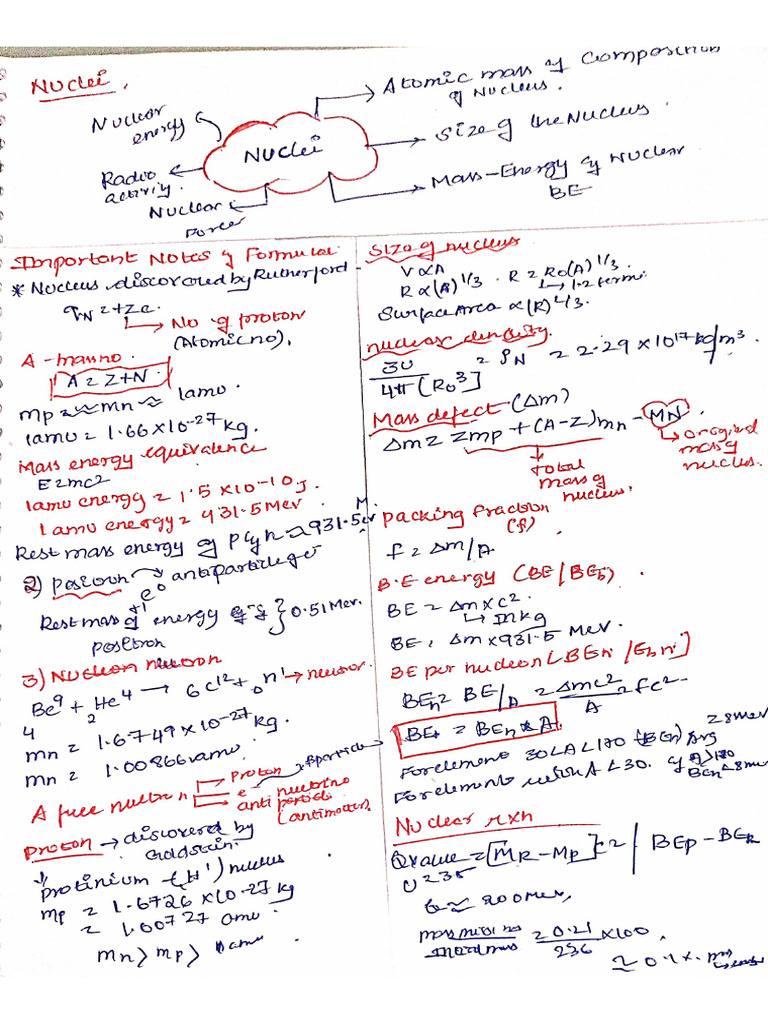 Nuclei.
Atomic mass & Composition of Nucleus.
Nuclear energy
Nuclei
Size of the Nucleus.
Radio activity.
Mass-Energy & Nuclear BE
Nuclear Force
Important Notes & Formulae
* Nucleus discovered by Rutherford
qN = +Ze
No of proton (Atomic no).
A - mass no.
A = Z+N.
mp ≈ mn ≈ 1amu.
1amu = 1.66×10-27 kg.
Mass energy equivalence
E=mc2
1amu energy = 1.5×10-10 J.
1amu energy = 931.5 Mev
Rest mass energy of P & n = 931.5 Mev
2) positron → antiparticle of
e0
+1
Rest mass energy of } 0.51 Mev.
positron
3) Nucleon neutron
Be9 + He4 → 6C12 + 0n1 → neutron.
4 2
mn = 1.6749×10-27 kg.
mn = 1.00866 amu.
A free neutron proton
e
anti particle (antimatter).
Proton → discovered by Goldstein.
protinium (H1) nucleus
mp = 1.6726×10-27 kg
= 1.00727 amu.
mn > mp > 1amu.
Size of nucleus
V∝A
R∝(A)1/3. R = R0(A)1/3.
1.2 fermi
Surface Area ∝(R)2/3.
nuclear density.
3U
4π[R03] = ρN = 2.29×1017 kg/m3.
Mass defect (Δm)
Δm = Zmp + (A-Z)mn - MN.
original mass of nucleus.
total mass of nucleus.
packing fraction (f)
f = Δm/A
B.E energy (BE/BEb).
BE = Δm×c2.
in kg
BE = Δm×931.5 Mev.
BE per nucleon [BEn/Ebn]
BEn = BE/A = Δmc2/A = fc2
BEt = BEn × A.
For element 30<A<170 (BEn) Avg = 8 mev
For element with A<30. & A>170
BEn <8 mev
Nuclear rxn
Q value = [MR-Mp] = | BEp - BER
U 235
Q ≈ 200 Mev,
= 0.21/236 ×100.
≈ 0.1 %.